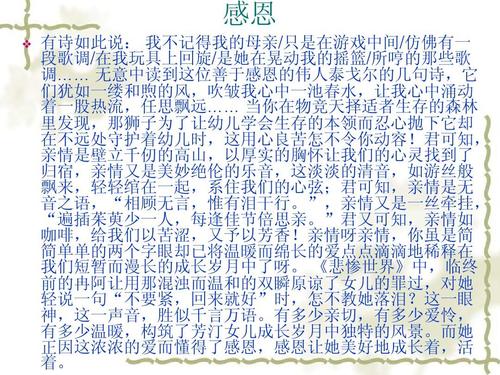 感恩
有诗如此说： 我不记得我的母亲/只是在游戏中间/仿佛有一
段歌调/在我玩具上回旋/是她在晃动我的摇篮/所哼的那些歌
调…… 无意中读到这位善于感恩的伟人泰戈尔的几句诗，它
们犹如一缕和煦的风，吹皱我心中一池春水，让我心中涌动
着一股热流，任思飘远…… 当你在物竞天择适者生存的森林
里发现，那狮子为了让幼儿学会生存的本领而忍心抛下它却
在不远处守护着幼儿时，这用心良苦怎不令你动容！君可知，
亲情是壁立千仞的高山，以厚实的胸怀让我们的心灵找到了
归宿，亲情又是美妙绝伦的乐音，这淡淡的清音，如游丝般
飘来，轻轻绾在一起，系住我们的心弦；君可知，亲情是无
音之语，“相顾无言，惟有泪千行。”，亲情又是一丝牵挂，
“遍插茱萸少一人，每逢佳节倍思亲。”君又可知，亲情如
咖啡，给我们以苦涩，又予以芳香！亲情呀亲情，你虽是简
简单单的两个字眼却已将温暖而绵长的爱点点滴滴地稀释在
我们短暂而漫长的成长岁月中了呀。 《悲惨世界》中，临终
前的冉阿让用那混浊而温和的双瞬原谅了女儿的罪过，对她
轻说一句“不要紧，回来就好”时，怎不教她落泪？这一眼
神，这一声音，胜似千言万语。有多少亲切，有多少爱怜，
有多少温暖，构筑了芳汀女儿成长岁月中独特的风景。而她
正因这浓浓的爱而懂得了感恩，感恩让她美好地成长着，活
着。